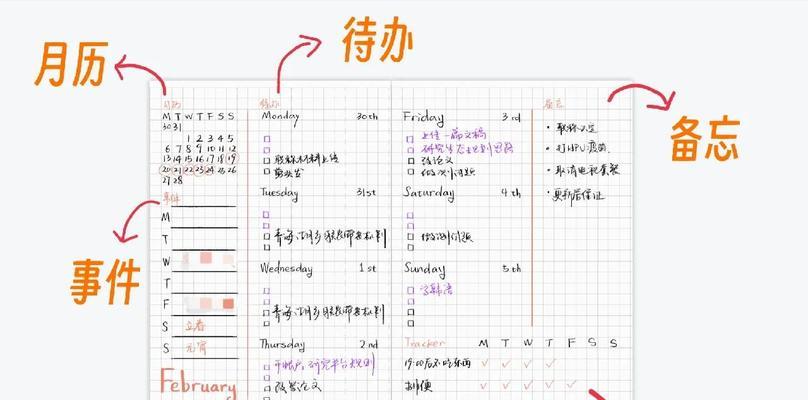 月历
待办
备忘
事件
月历
M T W T F S S
30 31
1 2 3 4 5
6 7 8 9 10 11 12
13 14 15 16 17 18 19
20 21 22 23 24 25 26
27 28
事件
M
T
W
T
F
S 立春
S 元宵
February
待办
Monday 30th
职称材料上传
剪头发
Tuesday 31st
Wednesday 1st
Thursday 2nd
改善论文
Friday 3rd
上传一篇文稿
改论文
Saturday 4th
Sunday 5th
写韩语
备忘
• 取消电视套餐
• 更新居住证
Tracker M T W T F S S
19:00后不吃东西 ✓ ✓ ✓ ✓
排便 ✓ ✓ ✓ ✓ ✓